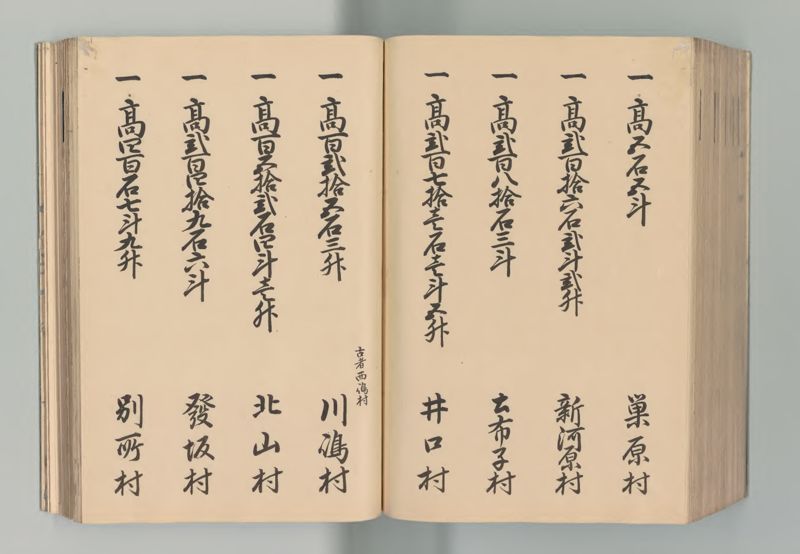 一 高五石五斗 巣原村
一 高弐百拾六石弐斗弐升 新河原村
一 高弐百八拾石三斗 土布子村
一 高弐百七拾壱石壱斗五升 井口村
古者西嶋村
一 高百弐拾五石三升 川嶋村
一 高百五拾弐石四斗壱升 北山村
一 高弐百四拾九石六斗 發坂村
一 高四百石七斗九升 別所村